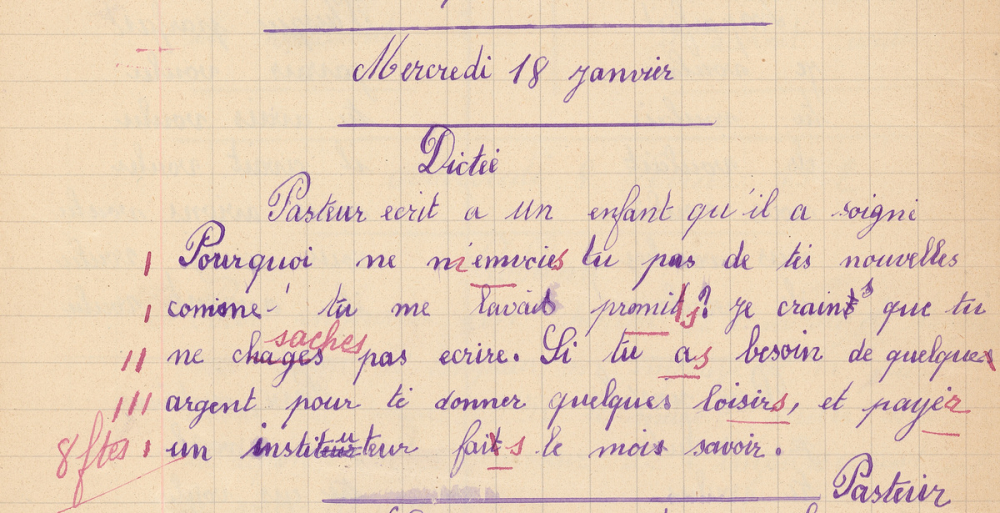 Mercredi 18 janvier
Dicteé
Pasteur ecrit a un enfant qu'il a soigné
| Pourquoi ne m'envoies tu pas de tes nouvelles
| comme tu me l'avait promits? Je crains que tu
|| ne chages saches pas ecrire. Si tu as besoin de quelque
||| argent pour te donner quelques loisirs, et payer
8 ftes | un instituteur faits le mois savoir.
Pasteur